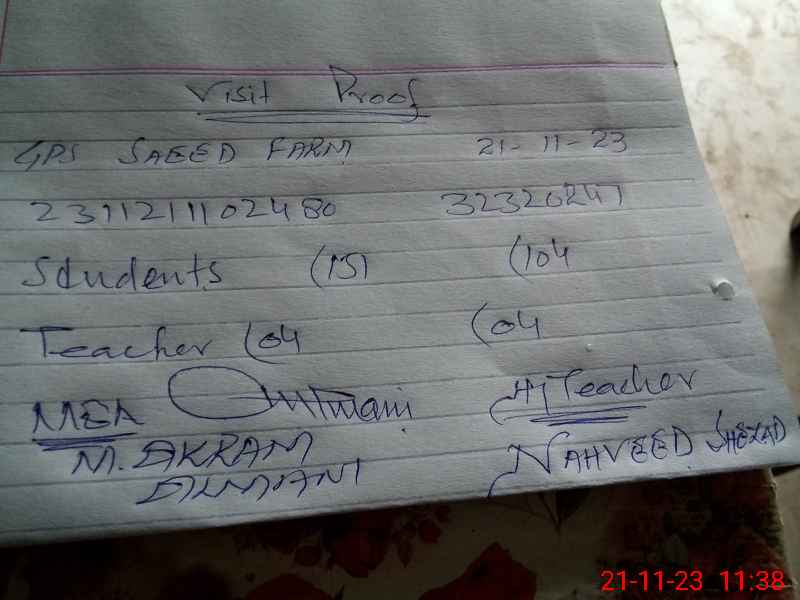 Visit Proof
GPS SAEED FARM 21-11-23
2311211102480 32320241
Students (151 (104
Teacher (04 (04
MEA H/Teacher
M. AKRAM NAHVEED SHEZAD
21-11-23 11:38